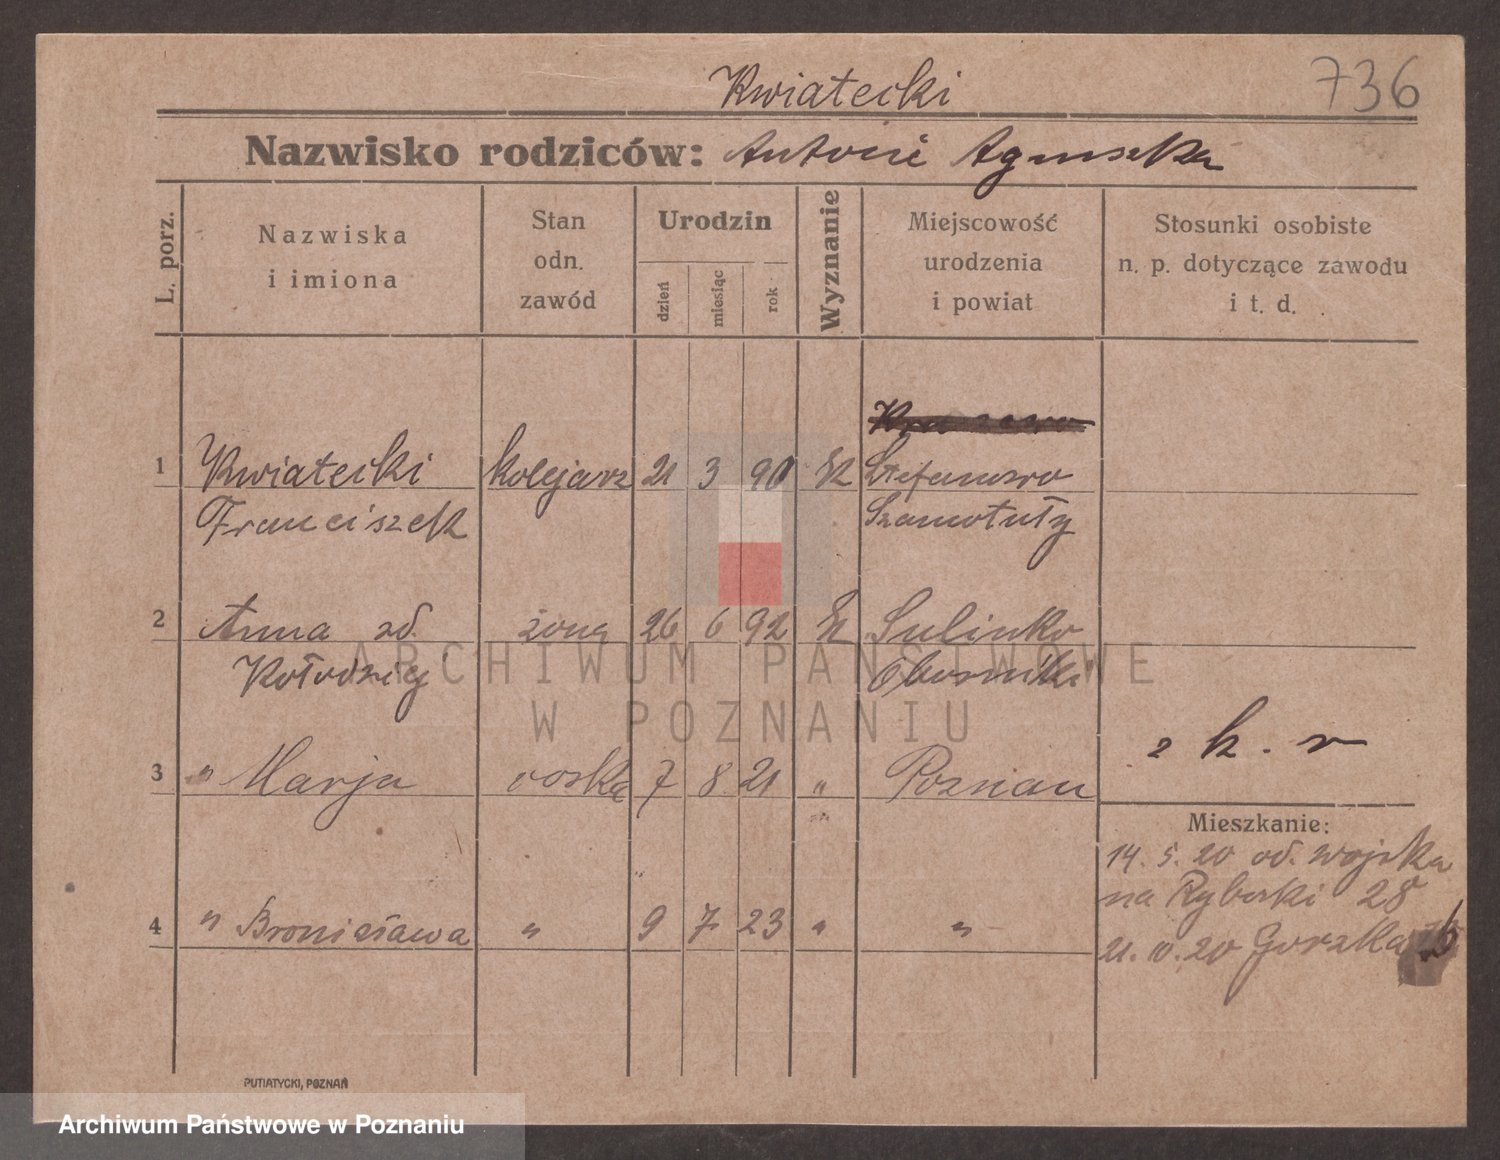 736
Kwiatecki
Nazwisko rodziców: Antoni Agnieszka
L. porz.
Nazwiska
i imiona
Stan
odn.
zawód
Urodzin
dzień
miesiąc
rok
Wyznanie
Miejscowość
urodzenia
i powiat
Stosunki osobiste
n. p. dotyczące zawodu
i t. d.
1 Kwiatecki kolejarz 21 3 90 Stefanowo
Franciszek Szamotuły
2 Anna żona 26 6 92 Sulinko
Kołodziej Oborniki
z k. r
3 " Marja córka 7 8 21 " Poznań
Mieszkanie:
14. 5. 20 od. wojska
na Rybaki 28
4 " Bronisława " 9 7 23 " "
21. 10. 20 Gorzka
PUTIATYCKI, POZNAŃ
ARCHIWUM PAŃSTWOWE
W POZNANIU
Archiwum Państwowe w Poznaniu